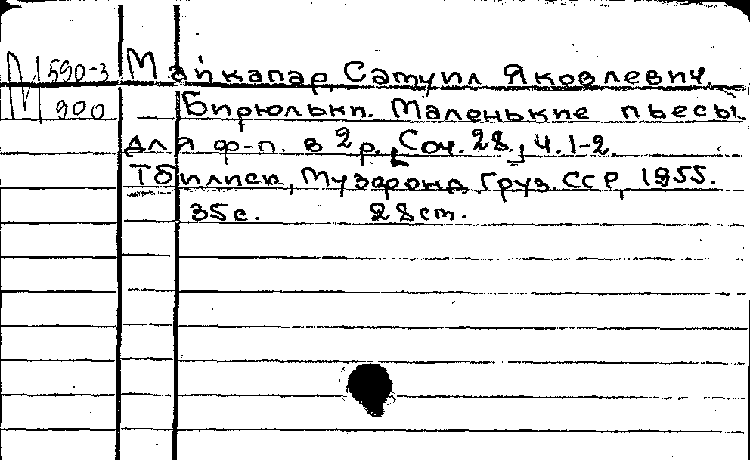 М 590-3 Майкапар, Самуил Яковлевич.
900 Бирюльки. Маленькие пьесы
для ф-п. в 2 р., [Соч. 28], ч. 1-2.
Тбилиси, Музфонд Груз. ССР, 1955.
35 с. 28 cm.